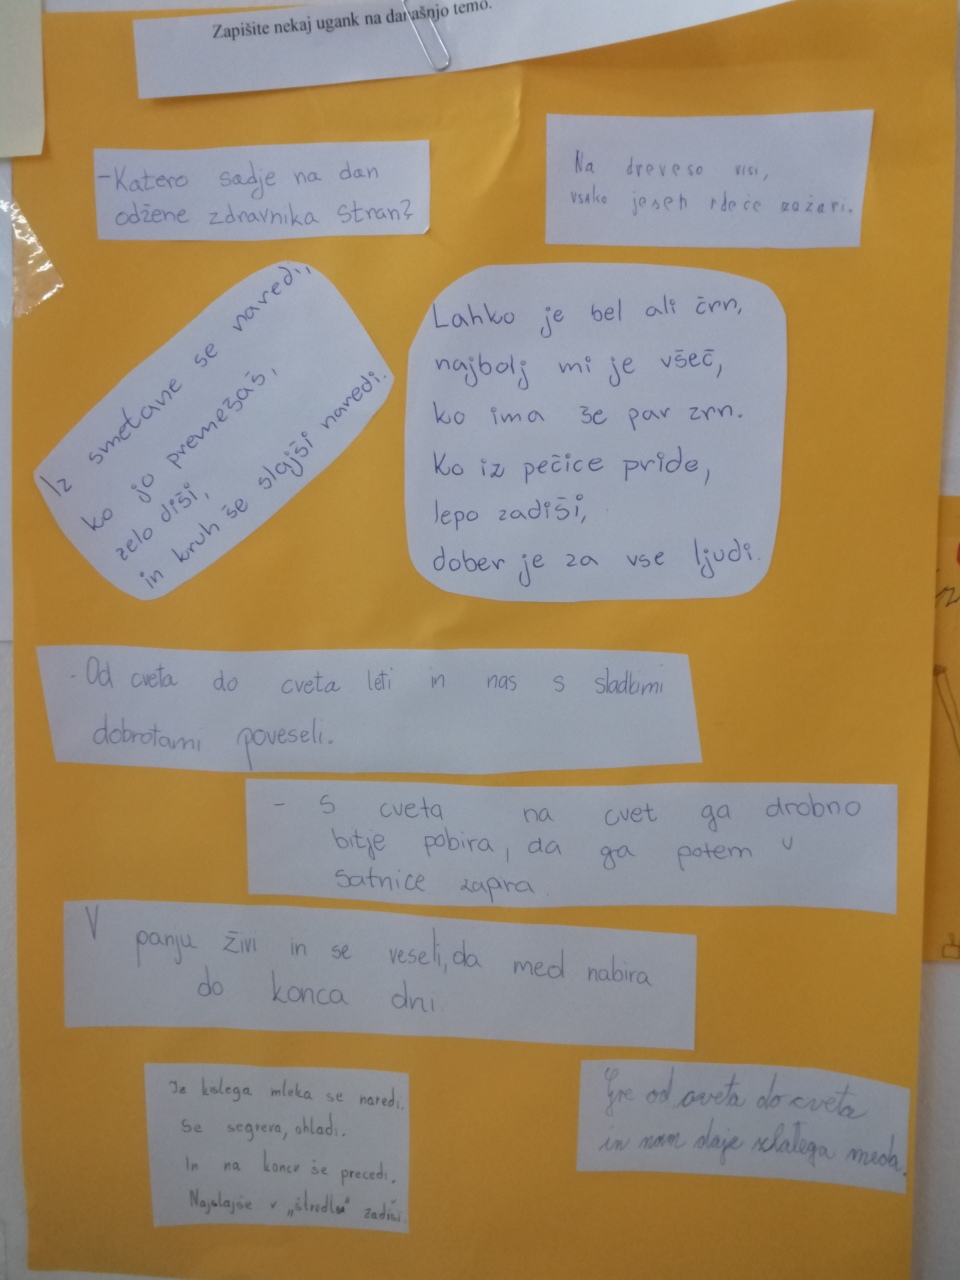 Zapišite nekaj ugank na današnjo temo.
- Katero sadje na dan
odžene zdravnika stran?
Na dreveso visi,
vsako jesen rdeče zažari.
Iz smetane se naredi,
ko jo premešaš,
zelo diši,
in kruh še slajši naredi.
Lahko je bel ali črn,
najbolj mi je všeč,
ko ima še par zrn.
Ko iz pečice pride,
lepo zadiši,
dober je za vse ljudi.
- Od cveta do cveta leti in nas s sladkimi
dobrotami poveseli.
- S cveta na cvet ga drobno
bitje pobira, da ga potem v
satnice zapra.
V panju živi in se veseli, da med nabira
do konca dni.
Iz mleka se naredi.
Se segreva, ohladi.
In na koncu še precedi.
Najslajše v zadiši
Gre od cveta do cveta
in nam daje zlatega meda.